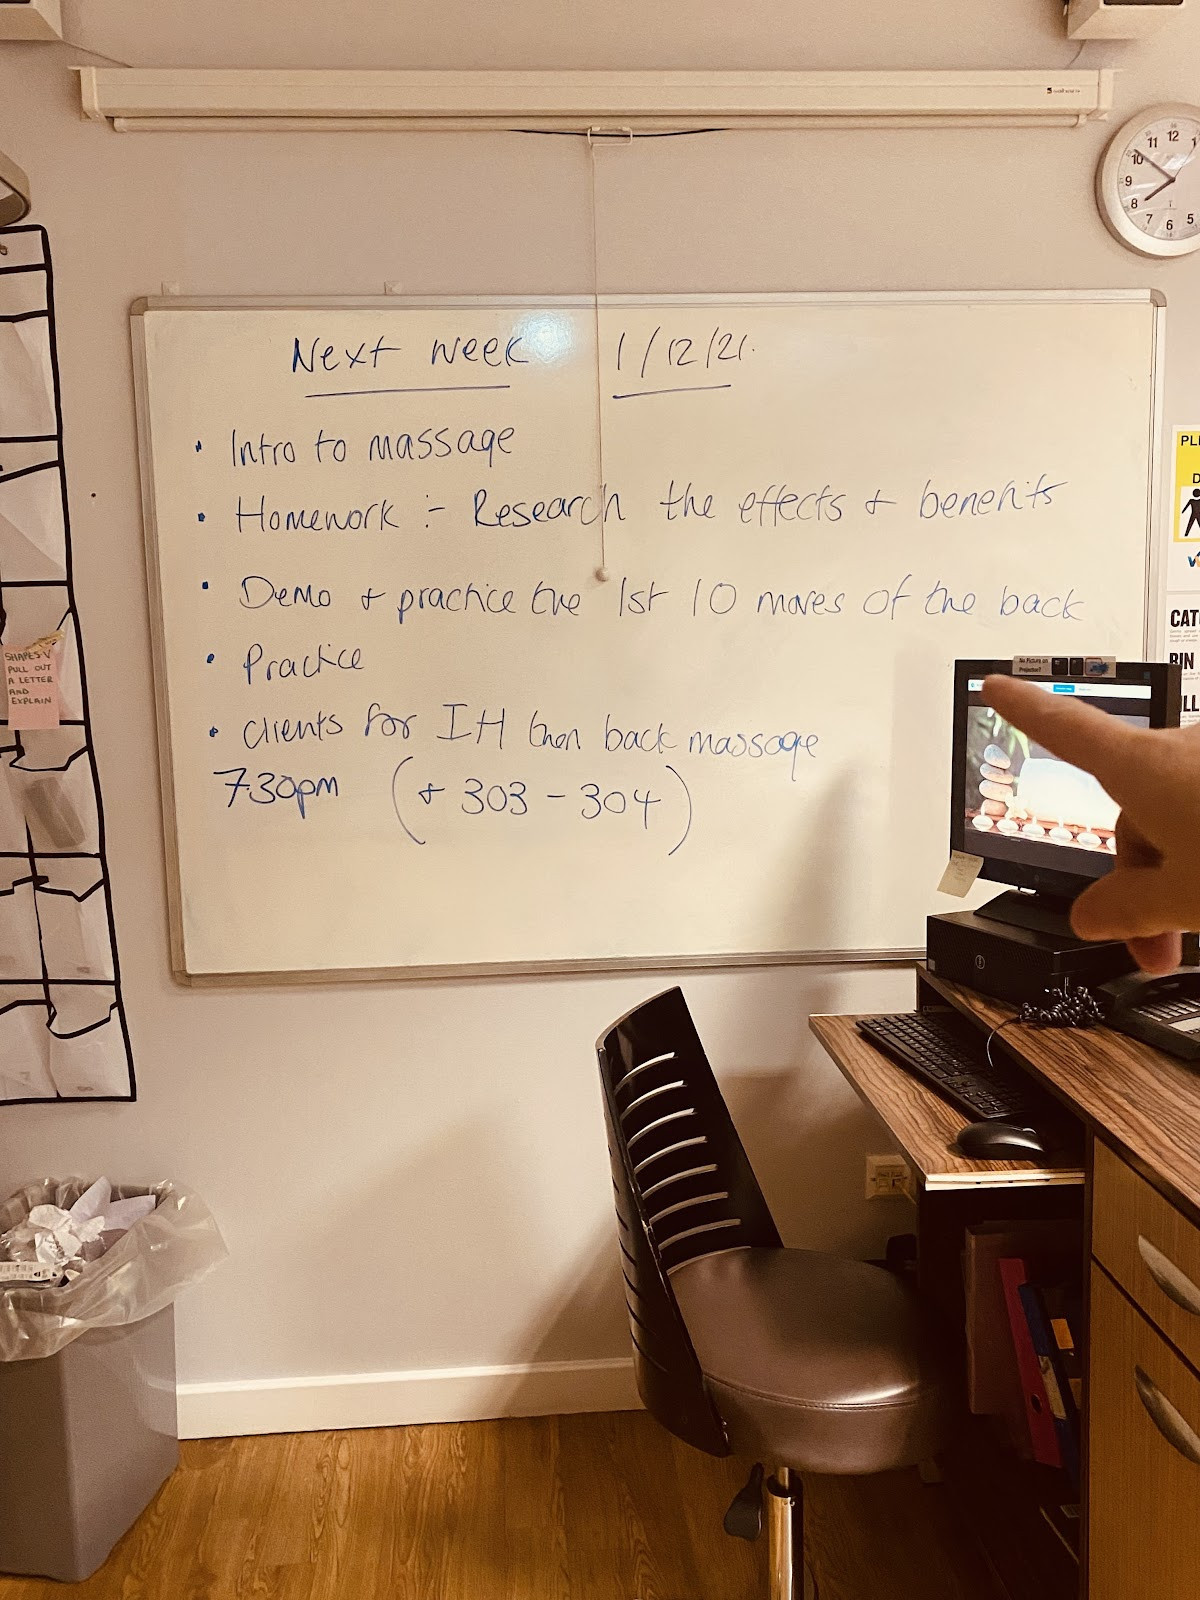 Next week 1/12/21.
• Intro to massage
• Homework :- Research the effects + benefits
• Demo + practice the 1st 10 moves of the back
• Practice
• clients for IH then back massage
7.30pm (+ 303 - 304)
11 12 1
10
9
8
7 6 5
SHAPES V
PULL OUT
A LETTER
AND
EXPLAIN
No Picture on
Projector?
PL
D
CAT
BIN